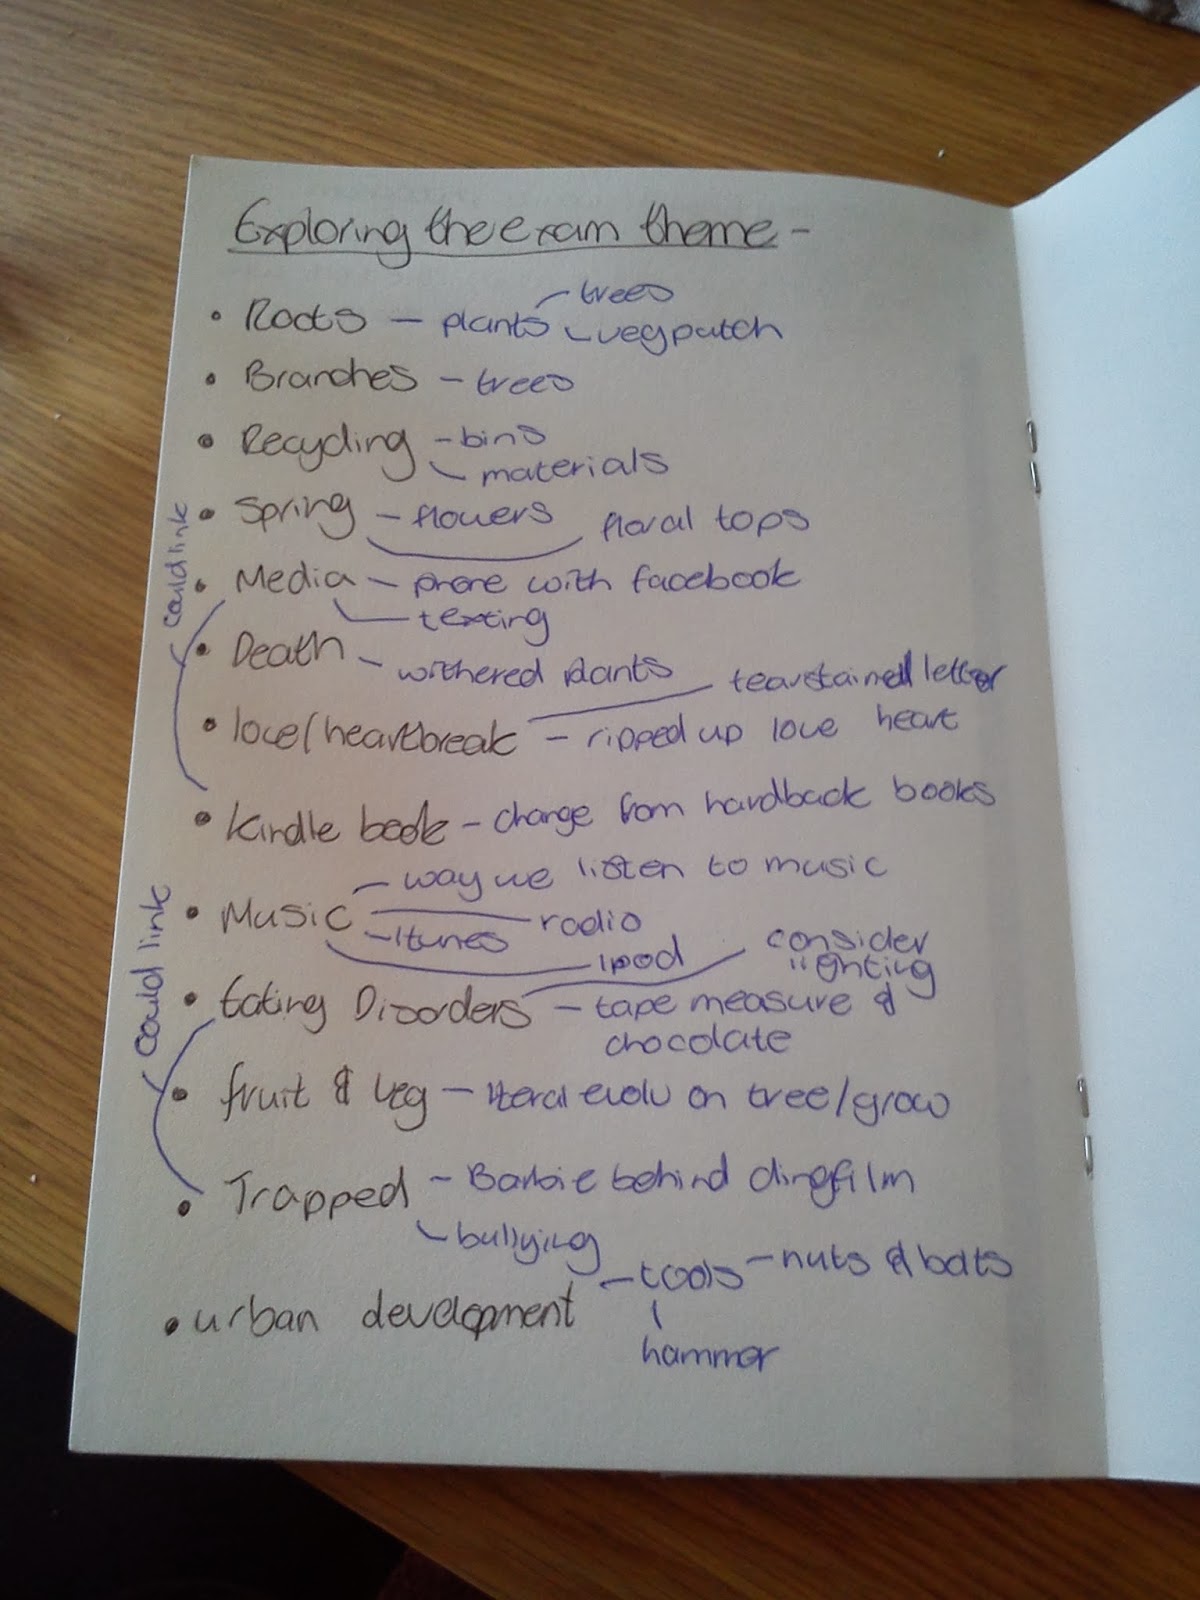 Exploring the exam theme -
trees
• Roots - plants
veg patch
• Branches - trees
• Recycling - bins
materials
• Spring - flowers floral tops
• Media - phone with facebook
texting
• Death - withered plants
tearstained letter
• love/heartbreak - ripped up love heart
• Kindle book - change from hardback books
- way we listen to music
• Music radio
- Itunes
ipod
consider
lighting
• Eating Disorders - tape measure &
chocolate
• fruit & veg - literal evolu on tree/grow
• Trapped - Barbie behind clingfilm
bullying
- tools - nuts & bolts
• urban development
hammer
could link
could link